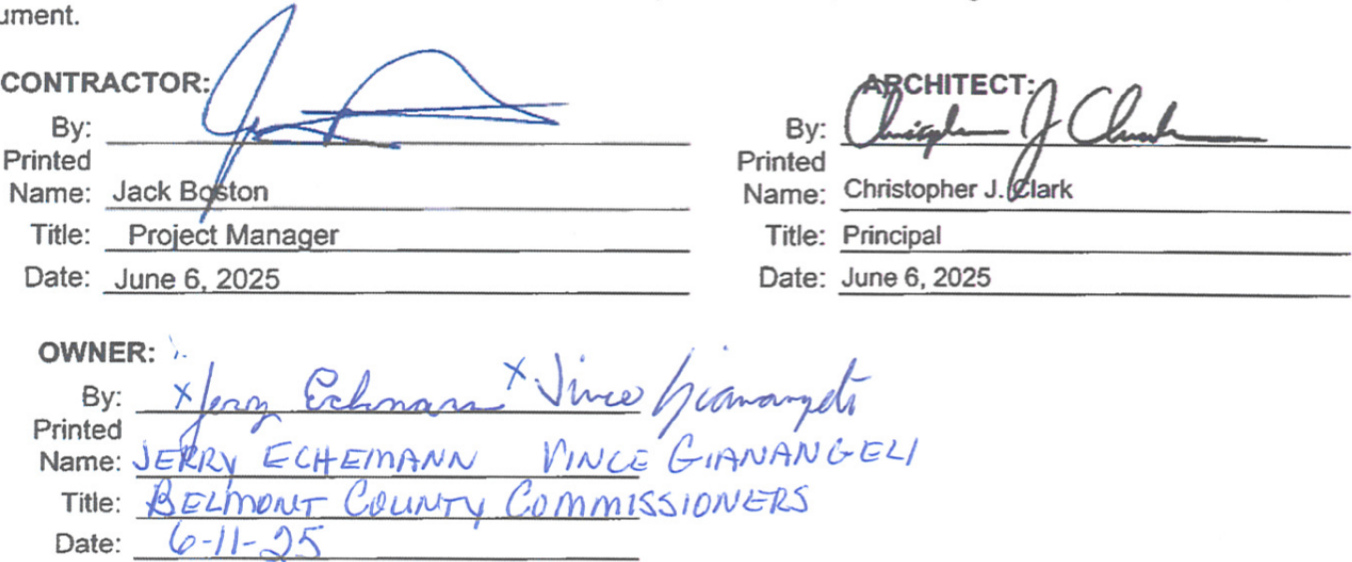 ument.
CONTRACTOR:
By:
Printed
Name: Jack Boston
Title: Project Manager
Date: June 6, 2025
ARCHITECT:
By: Christopher J Clark
Printed
Name: Christopher J. Clark
Title: Principal
Date: June 6, 2025
OWNER:
By: x Jerry Echemann x Vince Gianangeli
Printed
Name: JERRY ECHEMANN VINCE GIANANGELI
Title: BELMONT COUNTY COMMISSIONERS
Date: 6-11-25